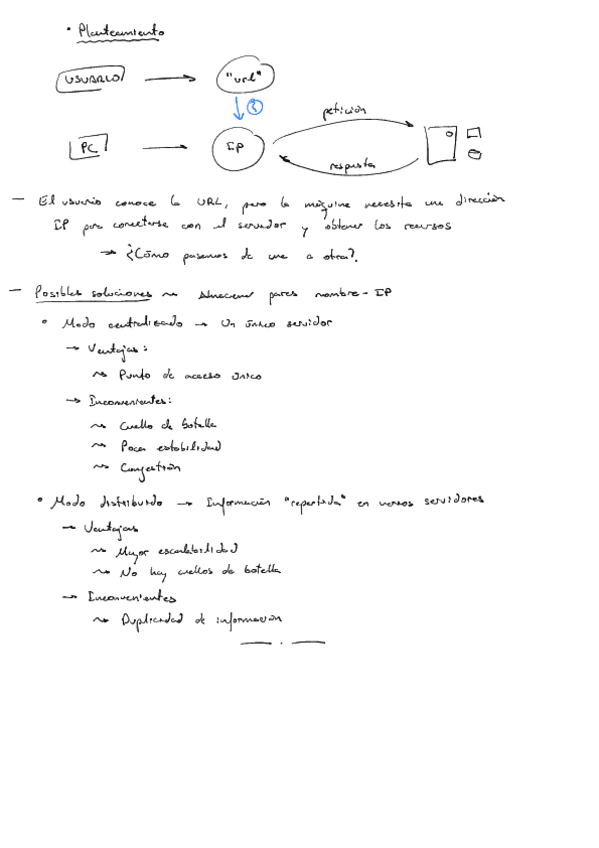 • Planteamiento
USUARIO → "url"
?
petición
PC → IP
respuesta
— El usuario conoce la URL, pero la máquina necesita una dirección
IP para conectarse con el servidor y obtener los recursos
→ ¿Cómo pasamos de una a otra?.
— Posibles soluciones ~ Almacenar pares nombre-IP
• Modo centralizado → Un único servidor
→ Ventajas:
~ Punto de acceso único
→ Inconvenientes:
~ Cuello de botella
~ Poca estabilidad
~ Congestión
• Modo distribuido → Información "repartida" en varios servidores
→ Ventajas
~ Mayor escalabilidad
~ No hay cuellos de botella
→ Inconvenientes
~ Duplicidad de información